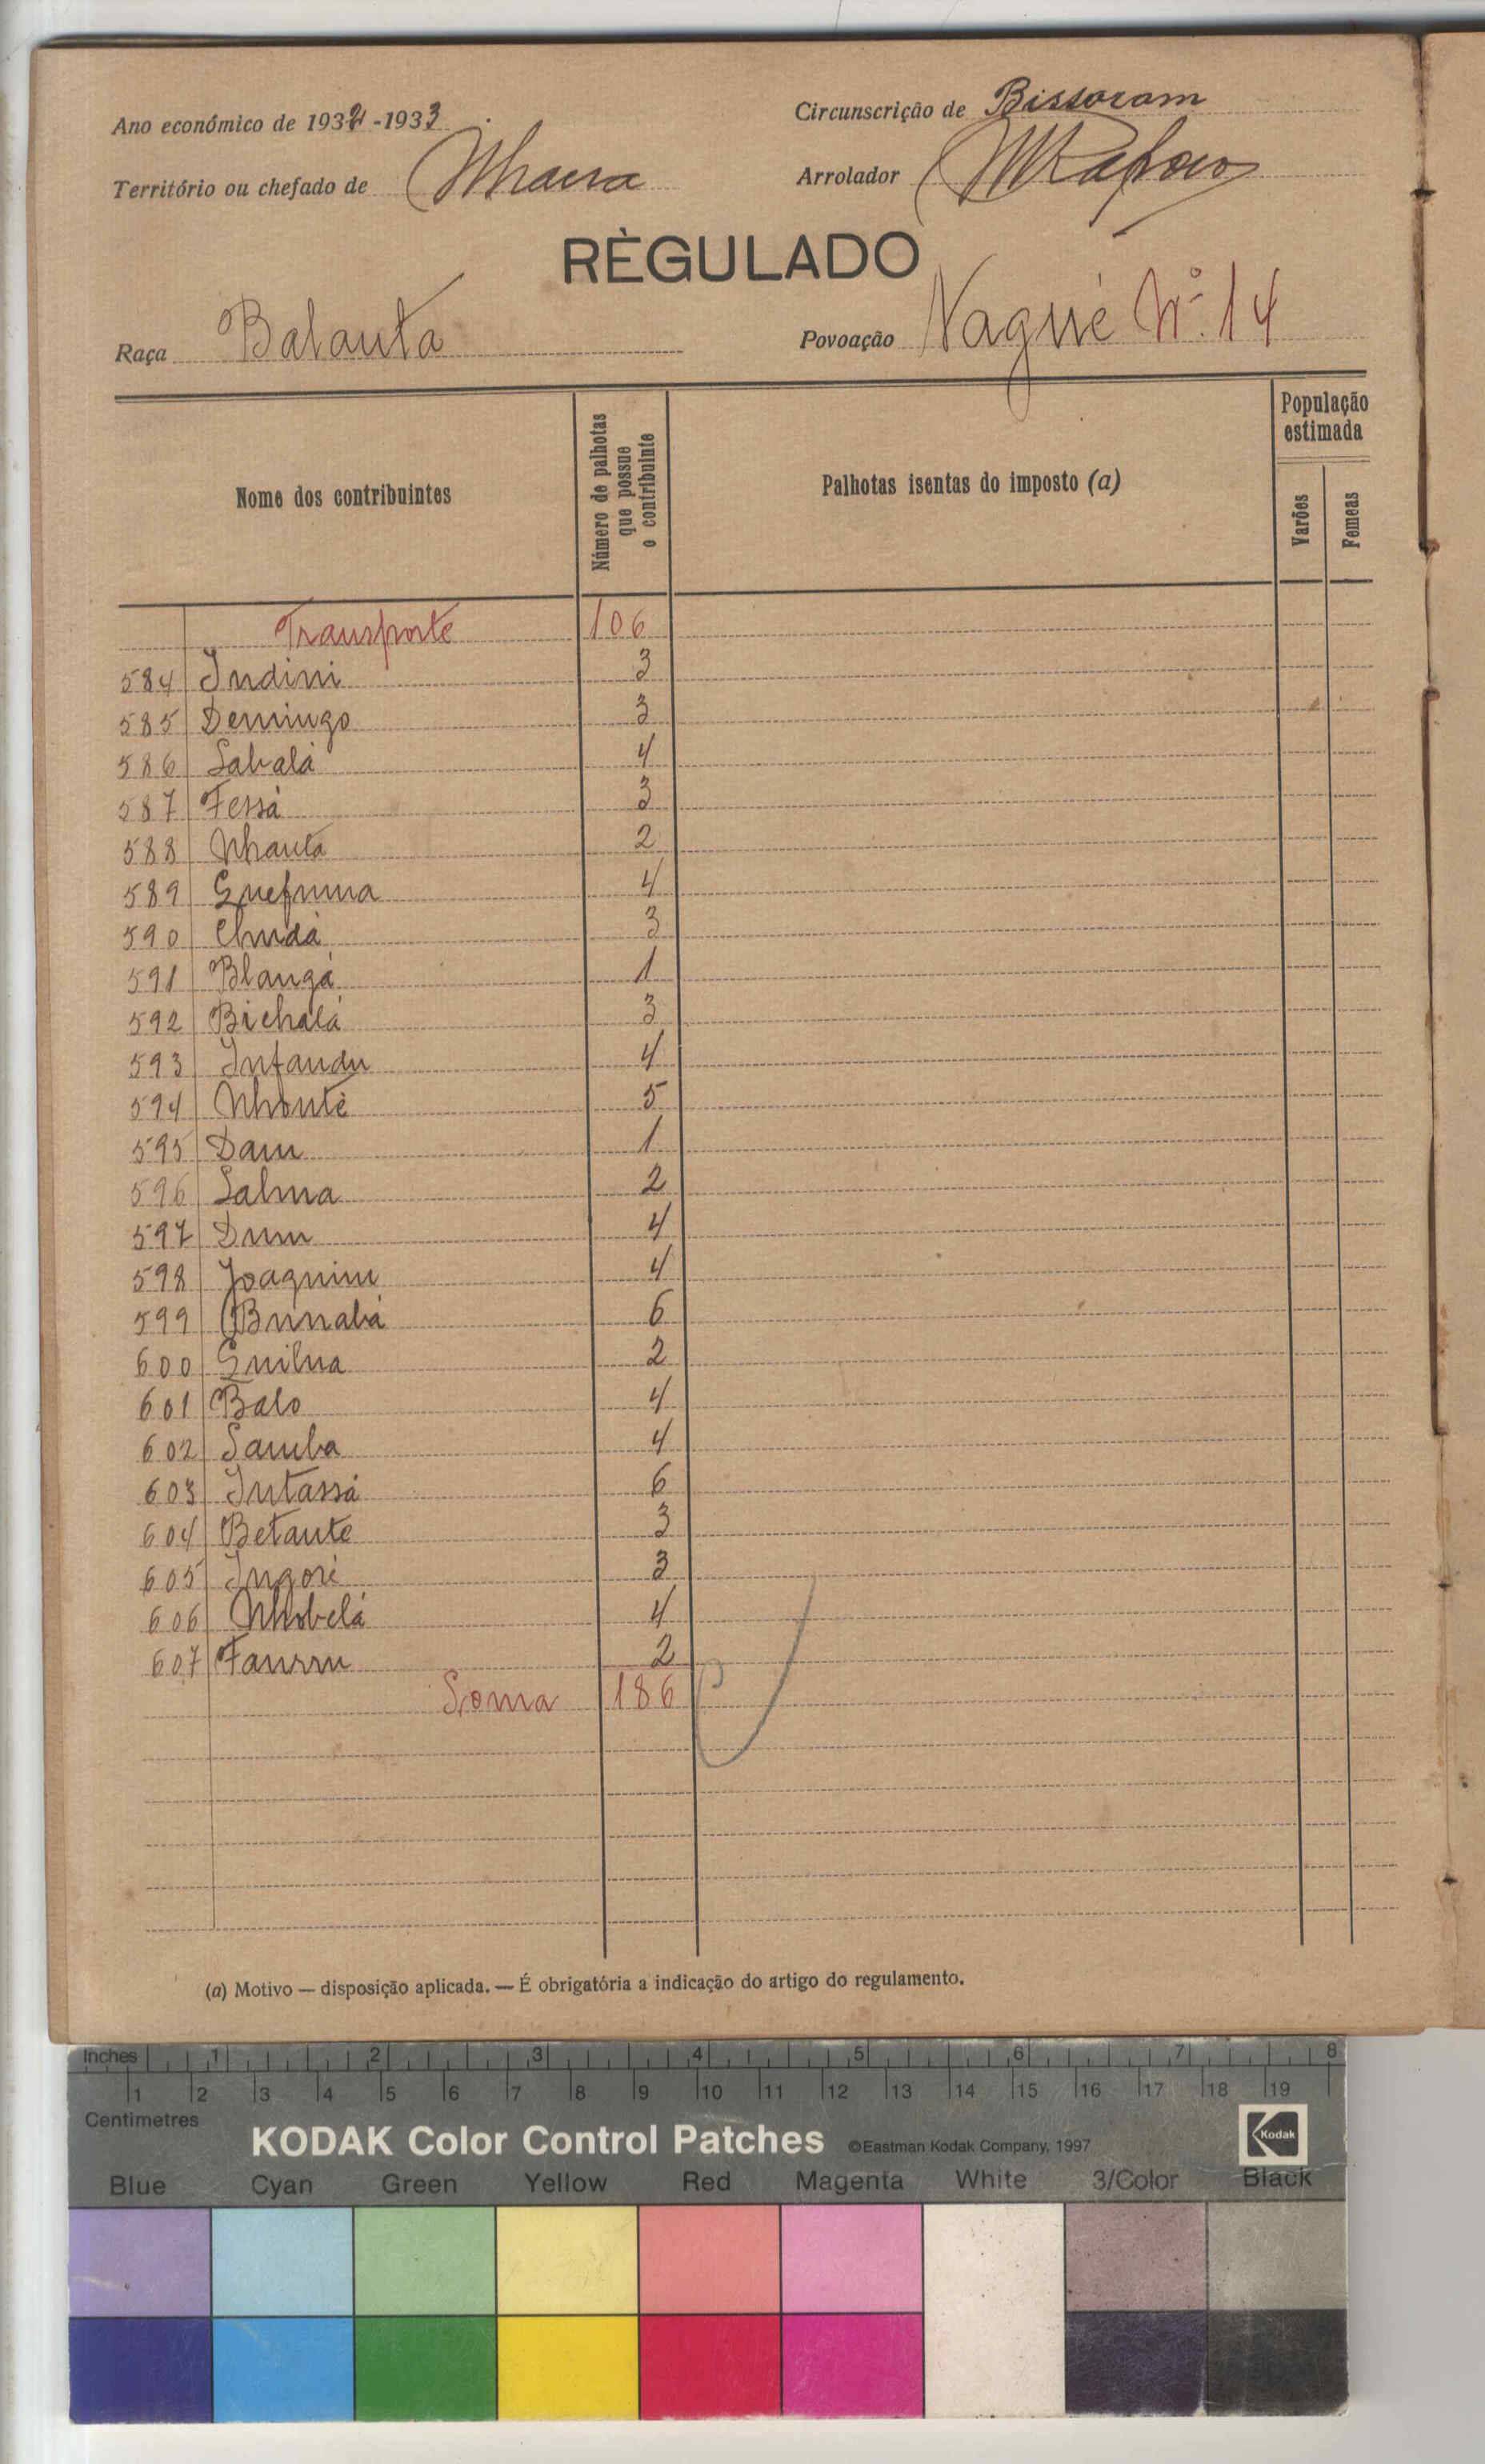 Ano económico de 1932-1933
Circunscrição de Bissoram
Território ou chefado de Nhacra
Arrolador
RÈGULADO
Raça Balanta
Povoação Nagué Nº 14
Nome dos contribuintes
Número de palhotas que possue o contribuinte
Palhotas isentas do imposto (a)
População estimada
Varões
Femeas
Transporte 106
584 Indini 3
585 Demingo 3
586 Sabalá 4
587 Fessá 3
588 Nhanta 2
589 Quefuma 4
590 Chudá 3
591 Blangá 1
592 Bichalá 3
593 Infandu 4
594 Nhonté 5
595 Dam 1
596 Salma 2
597 Dum 4
598 Joaquim 4
599 Bunabá 6
600 Quilua 2
601 Balo 4
602 Samba 4
603 Intassá 6
604 Betante 3
605 Ingoré 3
606 Nhobelá 4
607 2
Soma 186
(a) Motivo — disposição aplicada. — É obrigatória a indicação do artigo do regulamento.
Inches 1 2 3 4 5 6 7 8
1 2 3 4 5 6 7 8 9 10 11 12 13 14 15 16 17 18 19
Centimetres
KODAK Color Control Patches ©Eastman Kodak Company, 1997 Kodak
Blue Cyan Green Yellow Red Magenta White 3/Color Black